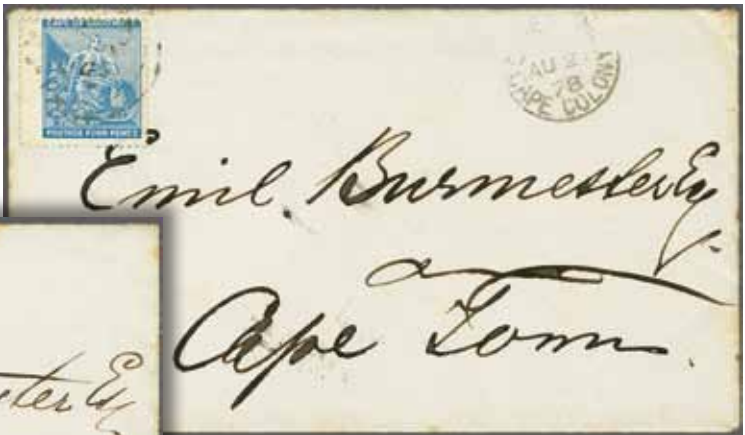 CAPE OF GOOD HOPE
POSTAGE FOUR PENCE
AU 2
78
CAPE COLONY
Emil Burmester Esq
Cape Town
ster Esq